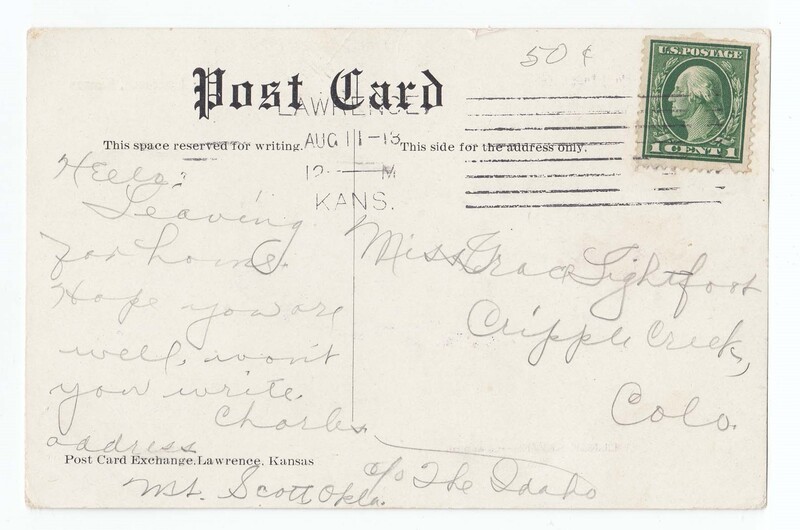 50¢
U.S. POSTAGE
1 CENT 1
Post Card
LAWRENCE,
AUG 11-13
12 - M
KANS.
This space reserved for writing.
This side for the address only.
Hello:
Leaving
for home.
Hope you are
well, won't
you write.
Charles
address
Mt. Scott Okla.
Miss Grace Lightfoot
Cripple Creek,
Colo.
c/o The Idaho
Post Card Exchange, Lawrence, Kansas